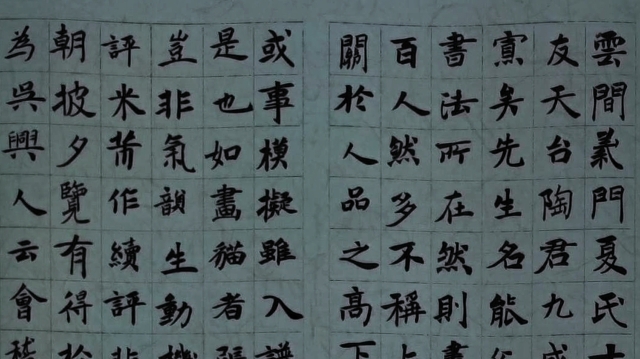 雲間義門夏氏士
友天台陶君九成
賔矣先生名能
書法所在然則書
百人然多不稱
關於人品之髙下
或事模擬雖入譜
是也如畫貓者張
豈非氣韻生動機
評米芾作續評非
朝披夕覽有得於
為吳興人云會稽